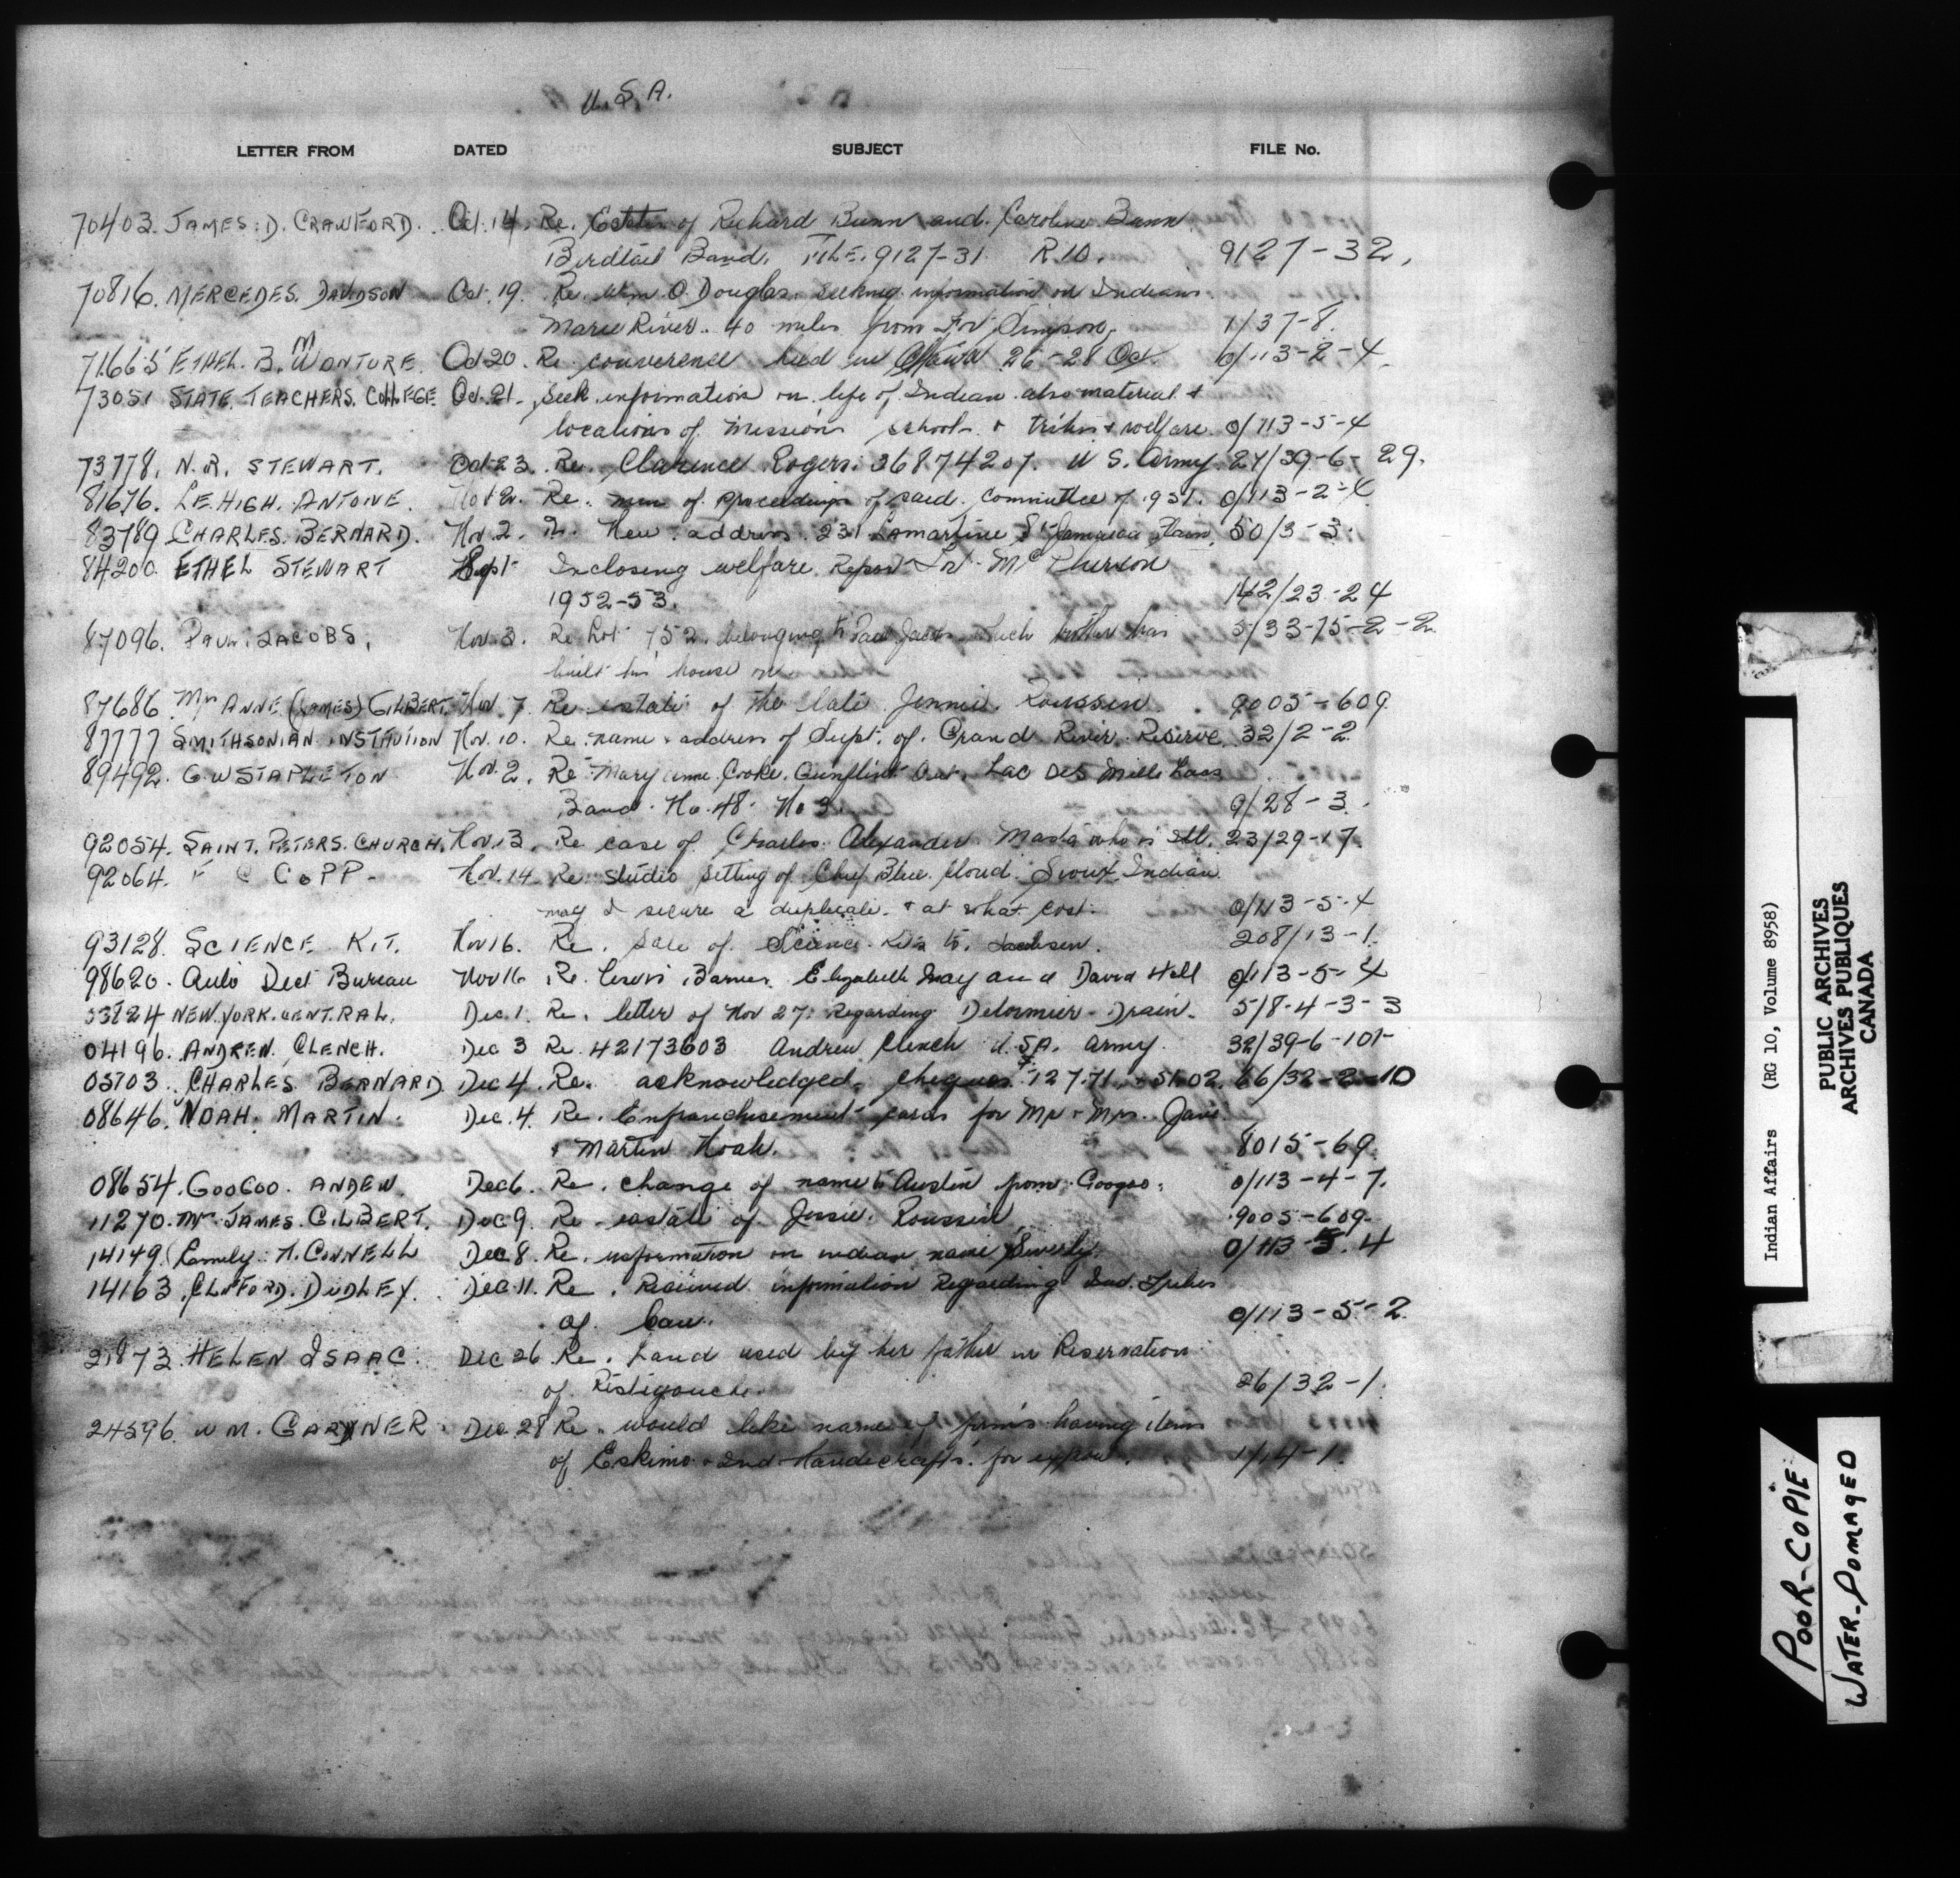 U.S.A.
LETTER FROM DATED SUBJECT FILE No.
70403. JAMES. D. CRAWFORD. Oct. 14. Re. Estates of Richard Bunn and. Caroline Bunn
Birdtail Band. FILE. 9127-31 R.10. 9127-32.
70816. MERCEDES. DAVIDSON Oct. 19. Re. Wm O. Douglas. seeking information on Indians
Marie River. 40 miles from Simpson. 1/37-8.
71665 ETHEL. B. MONTURE. Oct 20. Re. held in Ottawa 26-28 Oct. 0/113-2-4.
73051 STATE. TEACHERS. COLLEGE Oct. 21. Seek information on life of Indian also material &
locations of missions schools & tribes & welfare. 0/113-5-4
73778. N.R. STEWART. Oct 23. Re. Clarence Rogers. 36874207. U S. Army. 27/39-6-29.
81676. LEHIGH. ANTOINE. Nov 2. Re. of proceedings of said committee of 1951. 0/113-2-4
83789 CHARLES. BERNARD. Nov. 2. Re. New address. 231 Lamartine St Jamaica Plain. 50/3-3.
84200. ETHEL STEWART Sept Inclosing welfare Report Fort McPherson
1952-53. 142/23-24
87096. PAUL. JACOBS. Nov. 3. Re Lot 752. belonging to Paul Jacobs which brother has 5/33-75-2-2
built his house on
87686. Mrs ANNE (JAMES) GILBERT. Nov. 7. Re estate of the late Jennie. Roussin. 9005-609
87777 SMITHSONIAN INSTITUTION Nov. 10. Re. name & address of Supt. of Grand River Reserve. 32/2-2
89492. G.W STAPLETON Nov. 2. Re Mary Anne. Cooke. Gunflint Lac Des Mille Lacs
Band. No. 48. No 3. 9/28-3.
92054. SAINT. PETERS. CHURCH. Nov. 13. Re case of Charles. Alexander Masta who is ill. 23/29-17.
92064. F C COPP- Nov. 14 Re studio setting of Chief Blue. Cloud. Sioux Indian
may I secure a duplicate. & at what cost. 0/113-5-4
93128. SCIENCE KIT. Nov 16. Re. Sale of Science Kits to. 208/13-1.
98620. Auto Dect Bureau Nov 16 Re. Lewis Barnes. Elizabeth May and David Hill 0/113-5-4
33824 NEW.YORK.CENTRAL. Dec. 1. Re. letter of Nov 27. Regarding Delormier Drain. 5/8-4-3-3
04196. ANDREW. CLENCH. Dec 3 Re 42173603 Andrew Clench U.S.A. Army. 32/39-6-101-
05703. CHARLES BERNARD Dec 4. Re. acknowledged cheques $127.71. 51.02. 66/32-2-10
08646. NOAH. MARTIN. Dec. 4. Re. Enfranchisement for Mr & Mrs.
& Martin Noah. 8015-69.
08654. GOOGOO. ANDEW. Dec 6. Re. change of name to Austin from Googoo. 0/113-4-7.
11270. Mrs JAMES. GILBERT. Dec 9. Re. estate of Jessie. Roussin 9005-609.
14149. Family. CONNELL Dec 8. Re. information on indian name 0/113-5.4
14163. CLIFFORD. DUDLEY. Dec. 11. Re. Received information Regarding Ind. Tribes
of Can. 0/113-5-2.
21873 HELEN ISAAC. Dec 26 Re. Land used by her father in Reservation
of Ristigouche. 26/32-1.
24596. WM. GARDNER. Dec 28 Re. would like name of firms having items
of Eskimo & Ind Handicrafts. for export. 1/14-1.
Indian Affairs (RG 10, Volume 8958)
PUBLIC ARCHIVES
ARCHIVES PUBLIQUES
CANADA
POOR-COPIE
WATER-DOMAGED